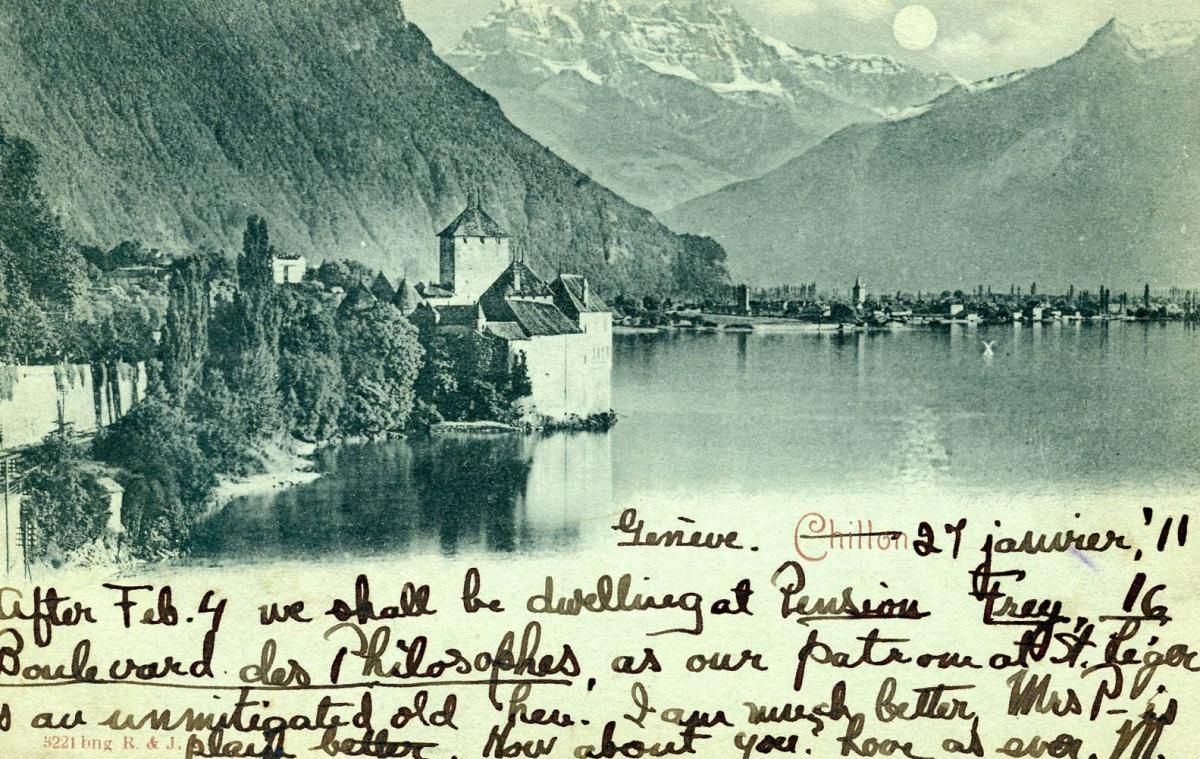 Genève. Chillon 27 janvier, '11
After Feb. 4 we shall be dwelling at Pension Frey, 16
Boulevard des Philosophes, as our patron at St. Léger
s an unmitigated old hen. I am much better, Mrs P- is
plain better. How about you? Love as ever, M.
5221bng R. & J.